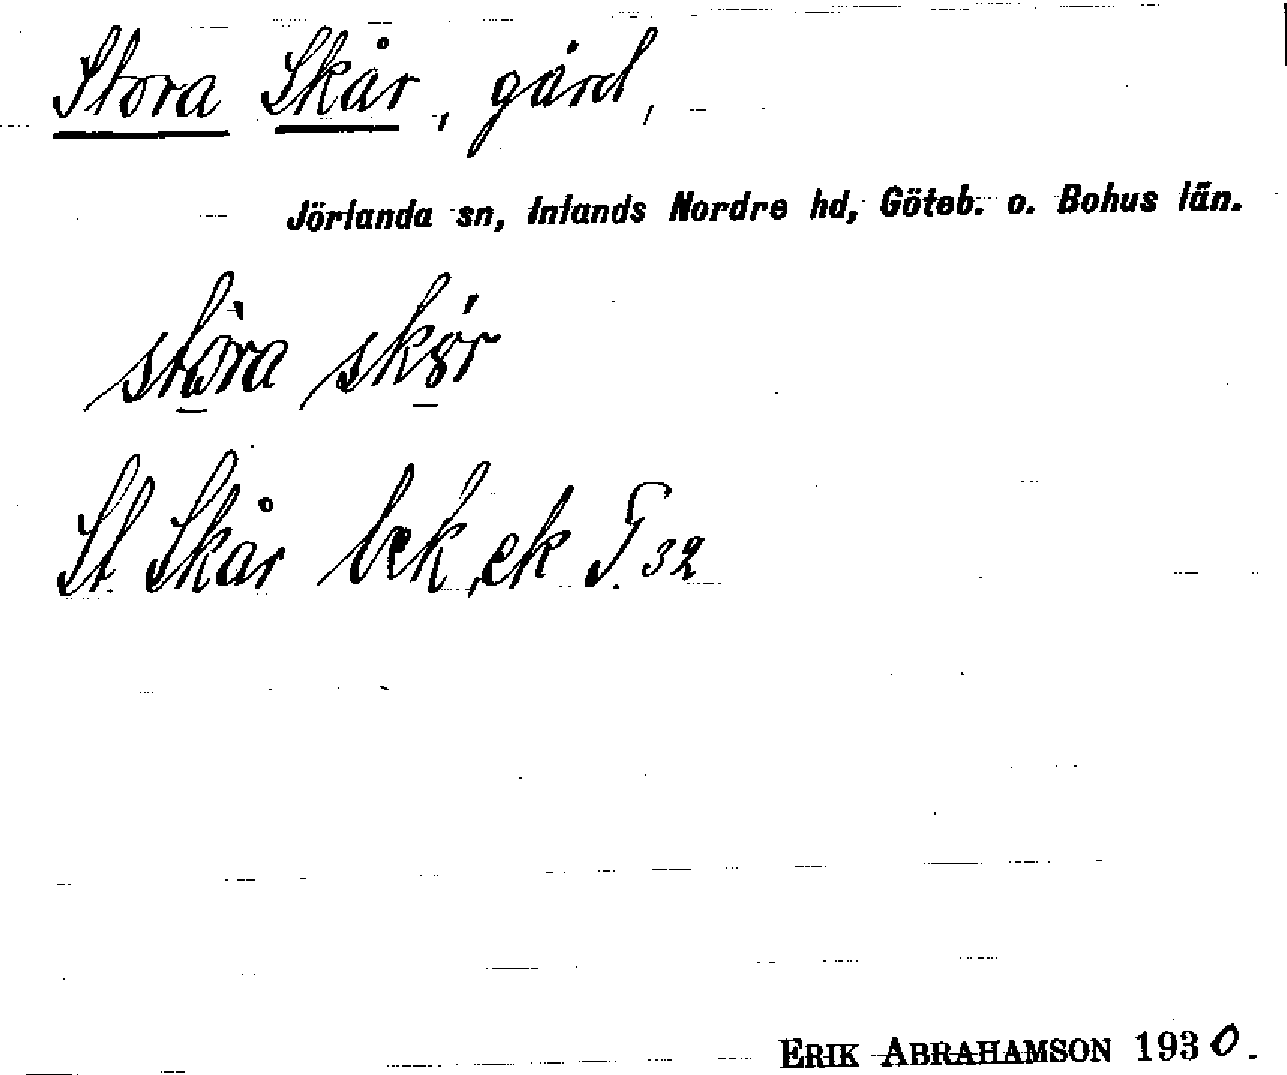 Stora Skår, gård,
Jörlanda sn, Inlands Nordre hd, Göteb. o. Bohus län.
stòra skór
St. Skår bek, ek T. 32
ERIK ABRAHAMSON 1930.